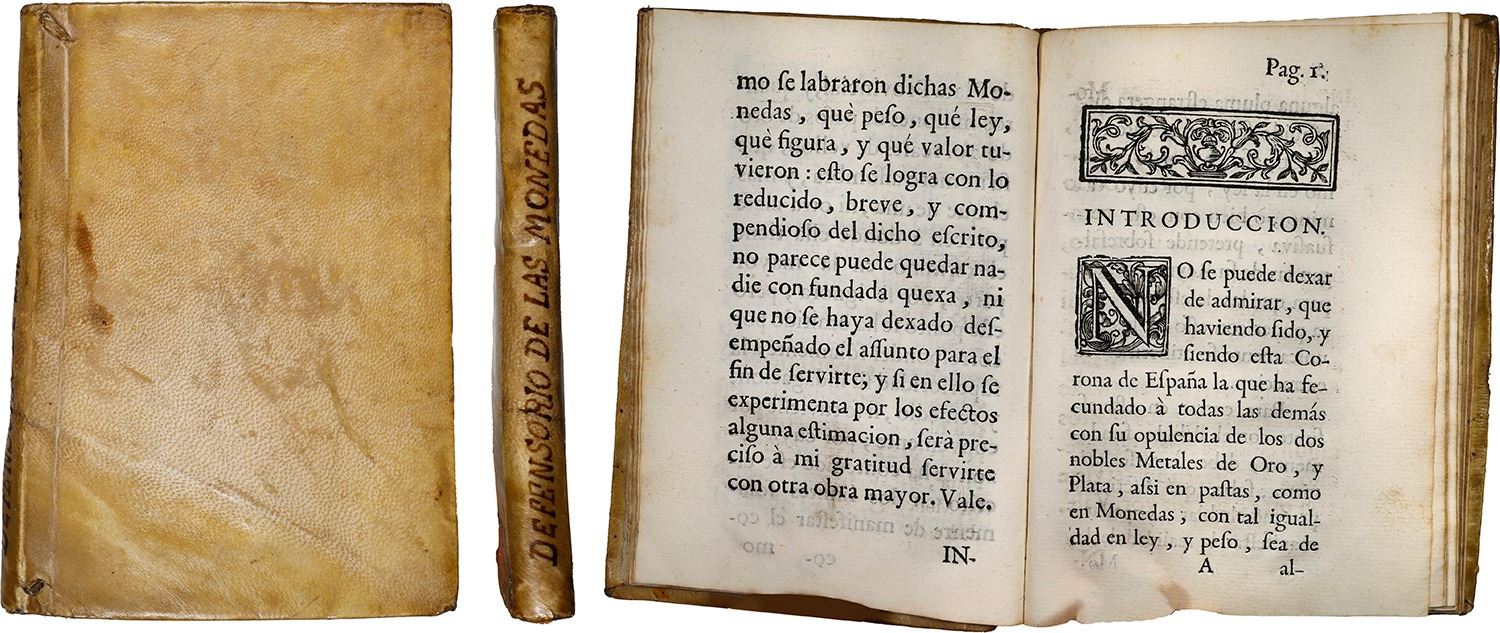 DEFENSORIO DE LAS MONEDAS
mo ſe labraron dichas Mo-
nedas , què peſo, qué ley,
què figura, y qué valor tu-
vieron : eſto ſe logra con lo
reducido, breve, y com-
pendioſo del dicho eſcrito,
no parece puede quedar na-
die con fundada quexa, ni
que no ſe haya dexado deſ-
empeñado el aſſunto para el
fin de ſervirte; y ſi en ello ſe
experimenta por los efectos
alguna eſtimacion, ſerà pre-
ciſo à mi gratitud ſervirte
con otra obra mayor. Vale.
IN-
Pag. 1.
INTRODUCCION.
NO ſe puede dexar
de admirar, que
haviendo ſido, y
ſiendo eſta Co-
rona de Eſpaña la que ha fe-
cundado à todas las demás
con ſu opulencia de los dos
nobles Metales de Oro, y
Plata, aſsi en paſtas, como
en Monedas, con tal igual-
dad en ley, y peſo, ſea de
A al-